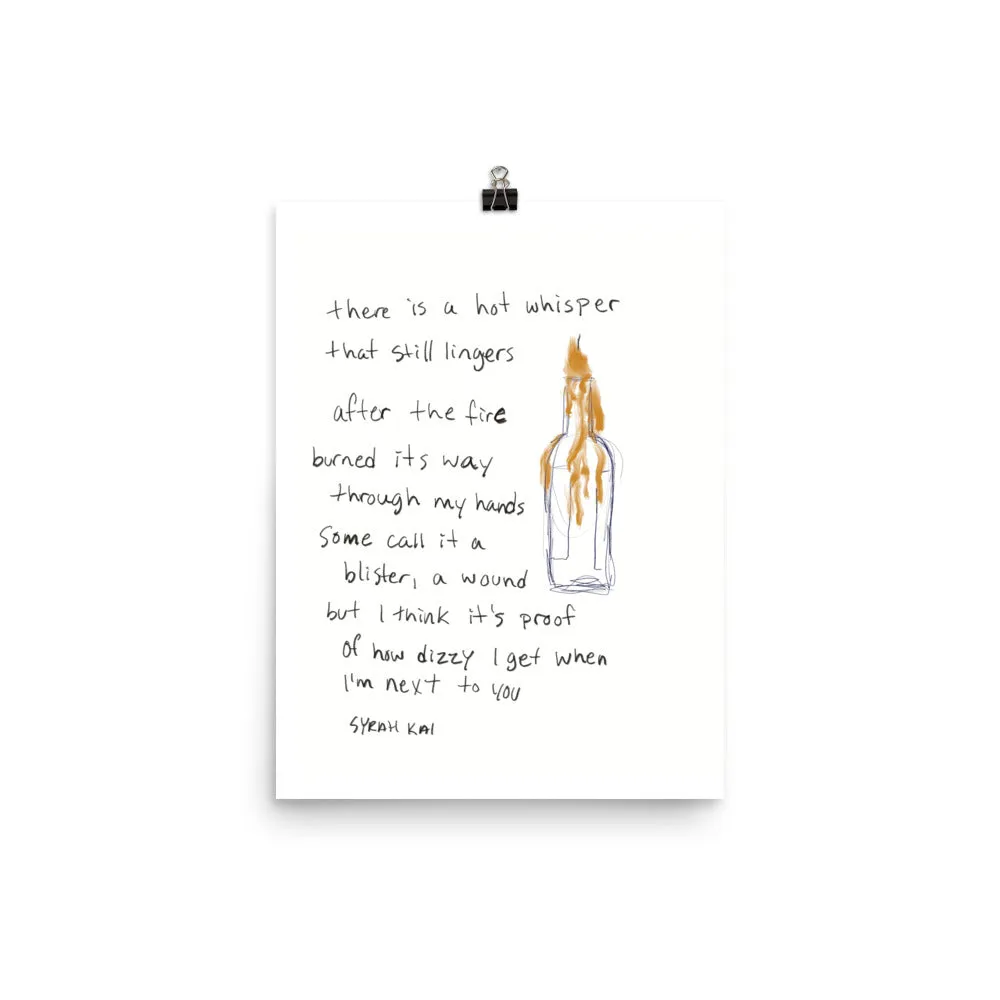 there is a hot whisper
that still lingers
after the fire
burned its way
through my hands
Some call it a
blister, a wound
but I think it's proof
of how dizzy I get when
I'm next to you
SYRAH KAI